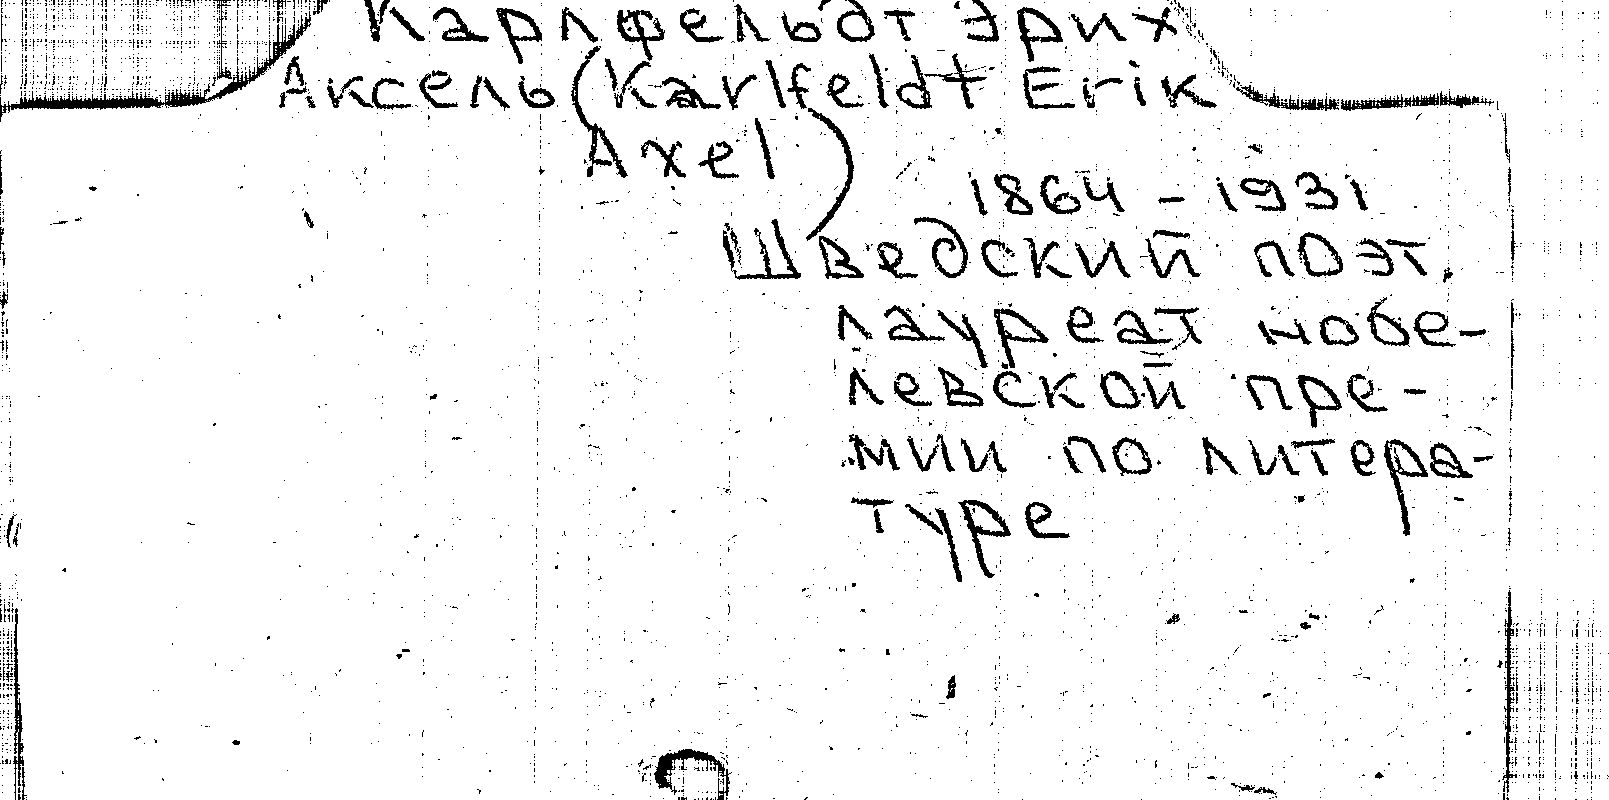 Карлфельдт Эрих
Аксель (Karlfeldt Erik
Axel)
1864 - 1931
Шведский поэт,
лауреат нобе-
левской пре-
мии по литера-
туре